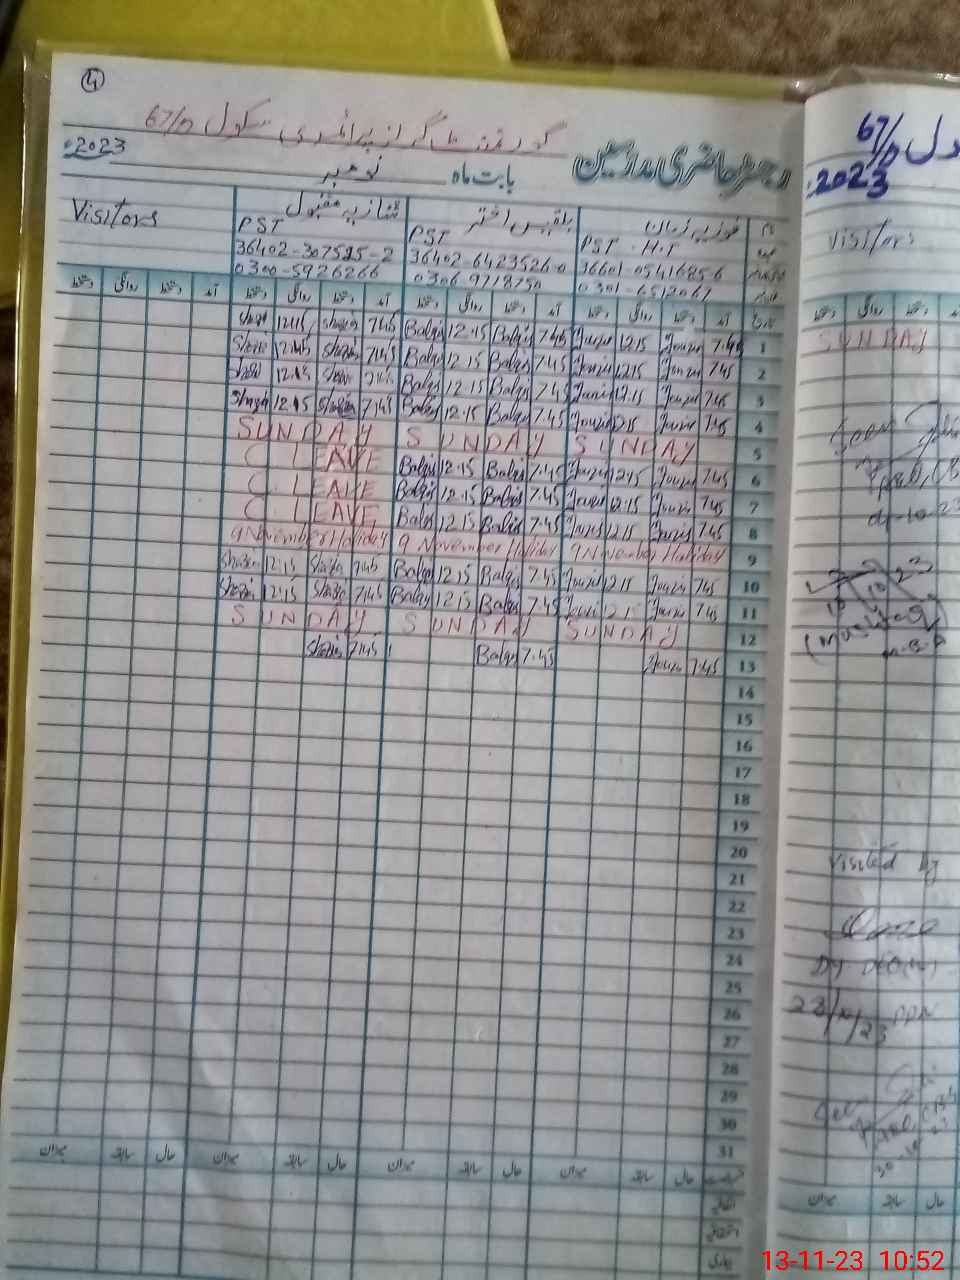 4
گورنمنٹ گرلز پرائمری سکول 67/D
رجسٹر حاضری مدرسین
بابت ماہ نومبر 2023
فوزیہ زمان
بلقیس اختر
شازیہ مقبول
Visitors
PST . H.T
PST
PST
36601-0541685-6
36402-6423526-0
36402-307595-2
0301-6512067
0306-9718750
0300-5926266
آمد دستخط روانگی دستخط آمد دستخط روانگی دستخط آمد دستخط روانگی دستخط آمد دستخط روانگی دستخط
1 7.45 Fouzia 12.15 Fouzia 7.45 Balqis 12.15 Balqis 7.45 Shazia 12.15 Shazia
2 7.45 Fouzia 12.15 Fouzia 7.45 Balqis 12.15 Balqis 7.45 Shazia 12.15 Shazia
3 7.45 Fouzia 12.15 Fouzia 7.45 Balqis 12.15 Balqis 7.45 Shazia 12.15 Shazia
4 7.45 Fouzia 12.15 Fouzia 7.45 Balqis 12.15 Balqis 7.45 Shazia 12.15 Shazia
SUNDAY SUNDAY SUNDAY 5
C. LEAVE Balqis 12.15 Balqis 7.45 Fouzia 12.15 Fouzia 7.45 6
C. LEAVE Balqis 12.15 Balqis 7.45 Fouzia 12.15 Fouzia 7.45 7
C. LEAVE Balqis 12.15 Balqis 7.45 Fouzia 12.15 Fouzia 7.45 8
9 November Holiday 9 November Holiday 9 November Holiday 9
Shazia 12.15 Shazia 7.45 Balqis 12.15 Balqis 7.45 Fouzia 12.15 Fouzia 7.45 10
Shazia 12.15 Shazia 7.45 Balqis 12.15 Balqis 7.45 Fouzia 12.15 Fouzia 7.45 11
SUNDAY SUNDAY SUNDAY 12
Shazia 7.45 Balqis 7.45 Fouzia 7.45 13
14
15
16
17
18
19
20
21
22
23
24
25
26
27
28
29
30
31
حال سابقہ میزان حال سابقہ میزان حال سابقہ میزان حال سابقہ میزان
اتفاقیہ
استحقاقی
بیماری
67/D
2023
Visitors
SUNDAY
Visited by
23/10/23
حال سابقہ میزان
13-11-23 10:52